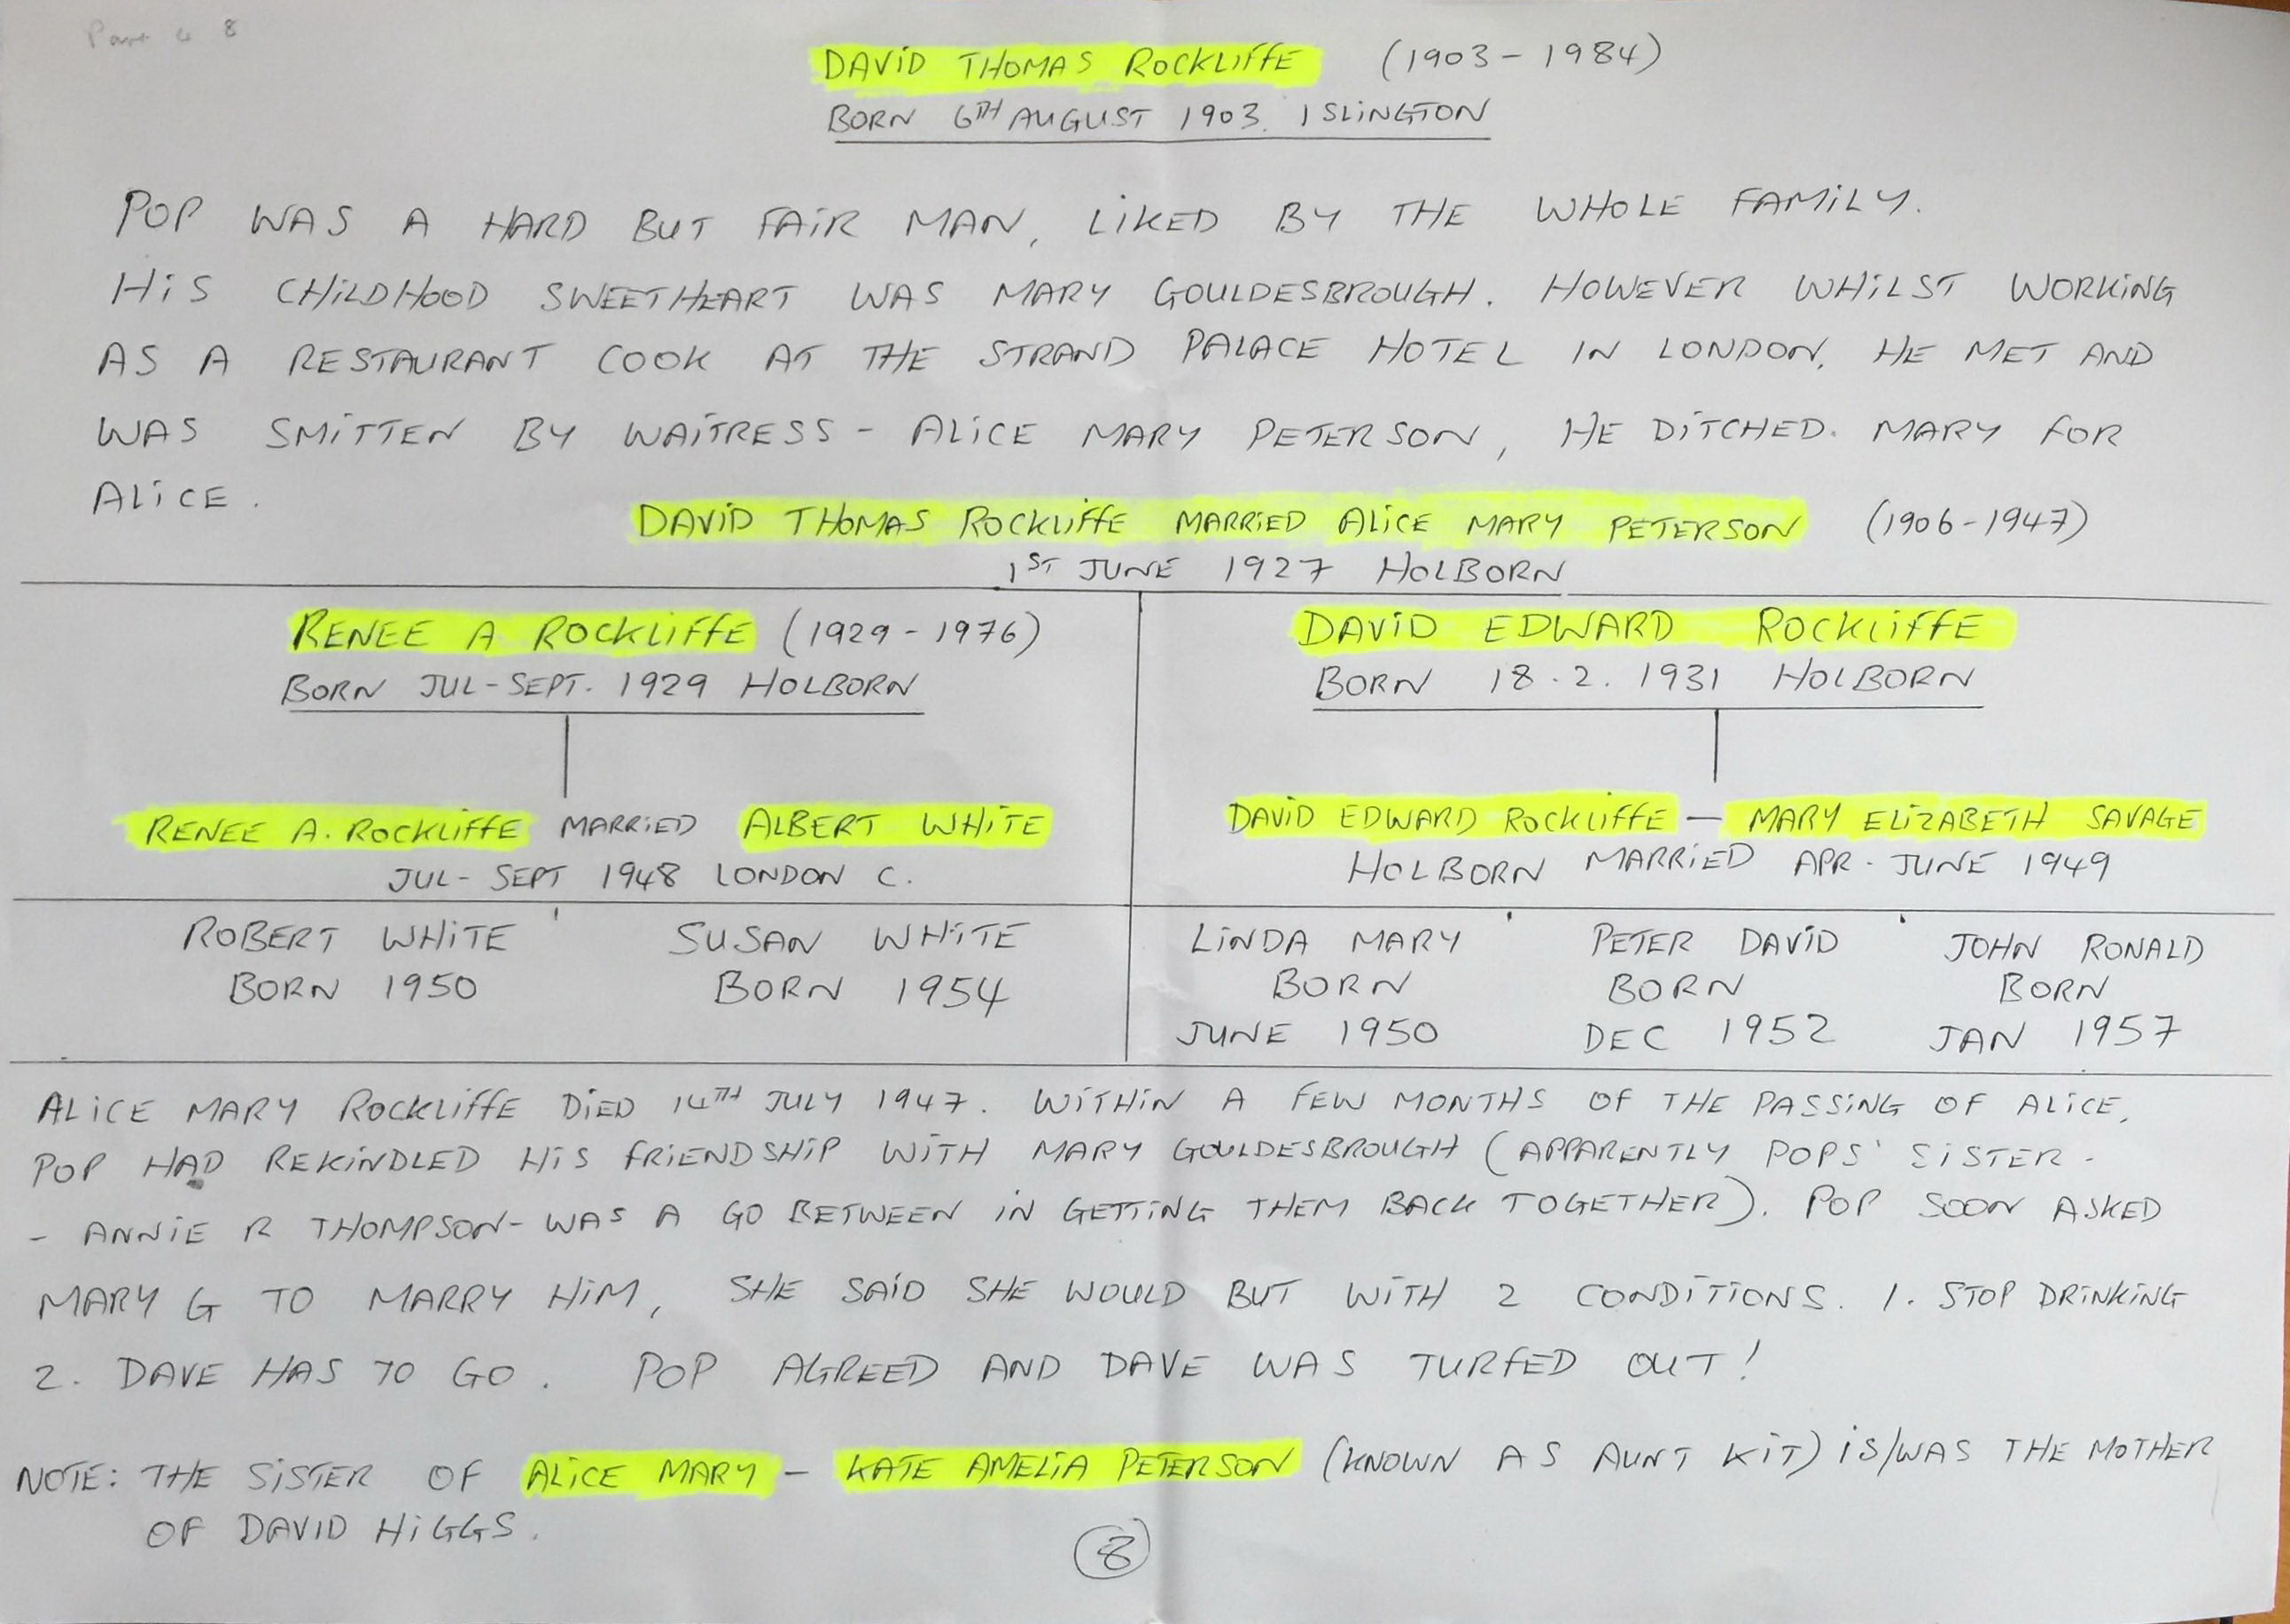 Part 4 8
DAVID THOMAS ROCKLIFFE (1903-1984)
BORN 6TH AUGUST 1903. ISLINGTON
POP WAS A HARD BUT FAIR MAN, LIKED BY THE WHOLE FAMILY.
HIS CHILDHOOD SWEETHEART WAS MARY GOULDESBROUGH. HOWEVER WHILST WORKING
AS A RESTAURANT COOK AT THE STRAND PALACE HOTEL IN LONDON, HE MET AND
WAS SMITTEN BY WAITRESS - ALICE MARY PETERSON, HE DITCHED. MARY FOR
ALICE.
DAVID THOMAS ROCKLIFFE MARRIED ALICE MARY PETERSON (1906-1947)
1ST JUNE 1927 HOLBORN
RENEE A ROCKLIFFE (1929-1976)
BORN JUL-SEPT. 1929 HOLBORN
RENEE A. ROCKLIFFE MARRIED ALBERT WHITE
JUL-SEPT 1948 LONDON C.
ROBERT WHITE
BORN 1950
SUSAN WHITE
BORN 1954
DAVID EDWARD ROCKLIFFE
BORN 18.2.1931 HOLBORN
DAVID EDWARD ROCKLIFFE - MARY ELIZABETH SAVAGE
HOLBORN MARRIED APR-JUNE 1949
LINDA MARY
BORN
JUNE 1950
PETER DAVID
BORN
DEC 1952
JOHN RONALD
BORN
JAN 1957
ALICE MARY ROCKLIFFE DIED 14TH JULY 1947. WITHIN A FEW MONTHS OF THE PASSING OF ALICE,
POP HAD REKINDLED HIS FRIENDSHIP WITH MARY GOULDESBROUGH (APPARENTLY POPS' SISTER -
- ANNIE R THOMPSON - WAS A GO BETWEEN IN GETTING THEM BACK TOGETHER). POP SOON ASKED
MARY G TO MARRY HIM, SHE SAID SHE WOULD BUT WITH 2 CONDITIONS. 1. STOP DRINKING
2. DAVE HAS TO GO. POP AGREED AND DAVE WAS TURFED OUT!
NOTE: THE SISTER OF ALICE MARY - KATE AMELIA PETERSON (KNOWN AS AUNT KIT) IS/WAS THE MOTHER
OF DAVID HIGGS.
8